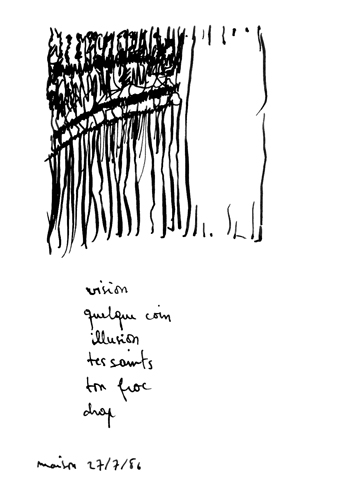 vision
quelque coin
illusion
tes saints
ton froc
drap
maison 27/7/86